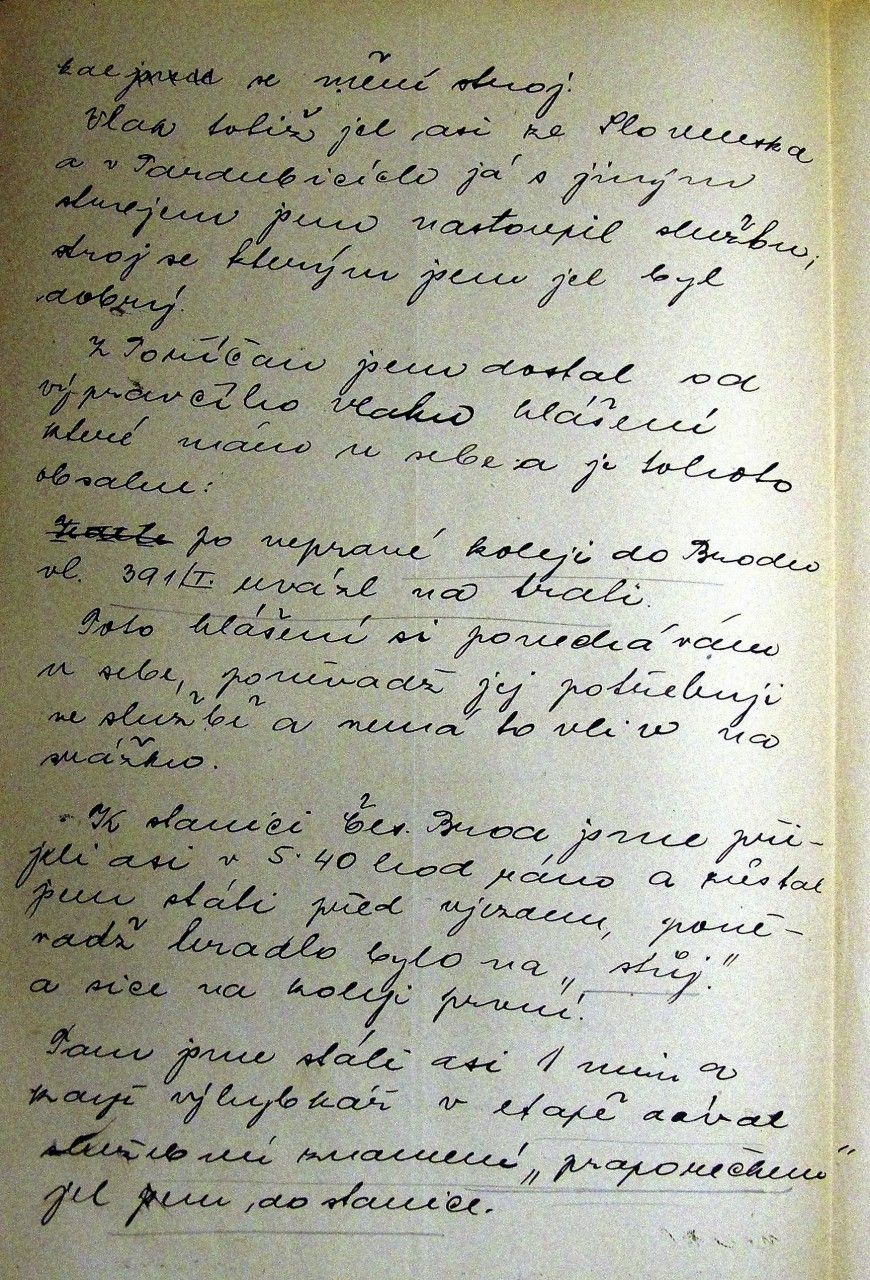 kde se mění stroj.
Vlak totiž jel asi ze Slovenska
a v Pardubicích já s jiným
strojem jsem nastoupil službu,
stroj se kterým jsem jel byl
dobrý.
Z Poříčan jsem dostal od
výpravčího vlaku hlášení
které mám u sebe a je tohoto
obsahu:
po nepravé koleji do Brodu
vl. 391/I. uvázl na trati.
Toto hlášení si ponechávám
u sebe, poněvadž jej potřebuji
ve službě a nemá to vliv na
srážku.
K stanici Čes. Brod jsme při-
jeli asi v 5.40 hod ráno a zůstal
jsem státi před vjezdem, poně-
vadž hradlo bylo na „stůj."
a sice na koleji první.
Tam jsme stáli asi 1 min a
když výhybkář v etapě dával
služební znamení „praporečkem"
jel jsem do stanice.